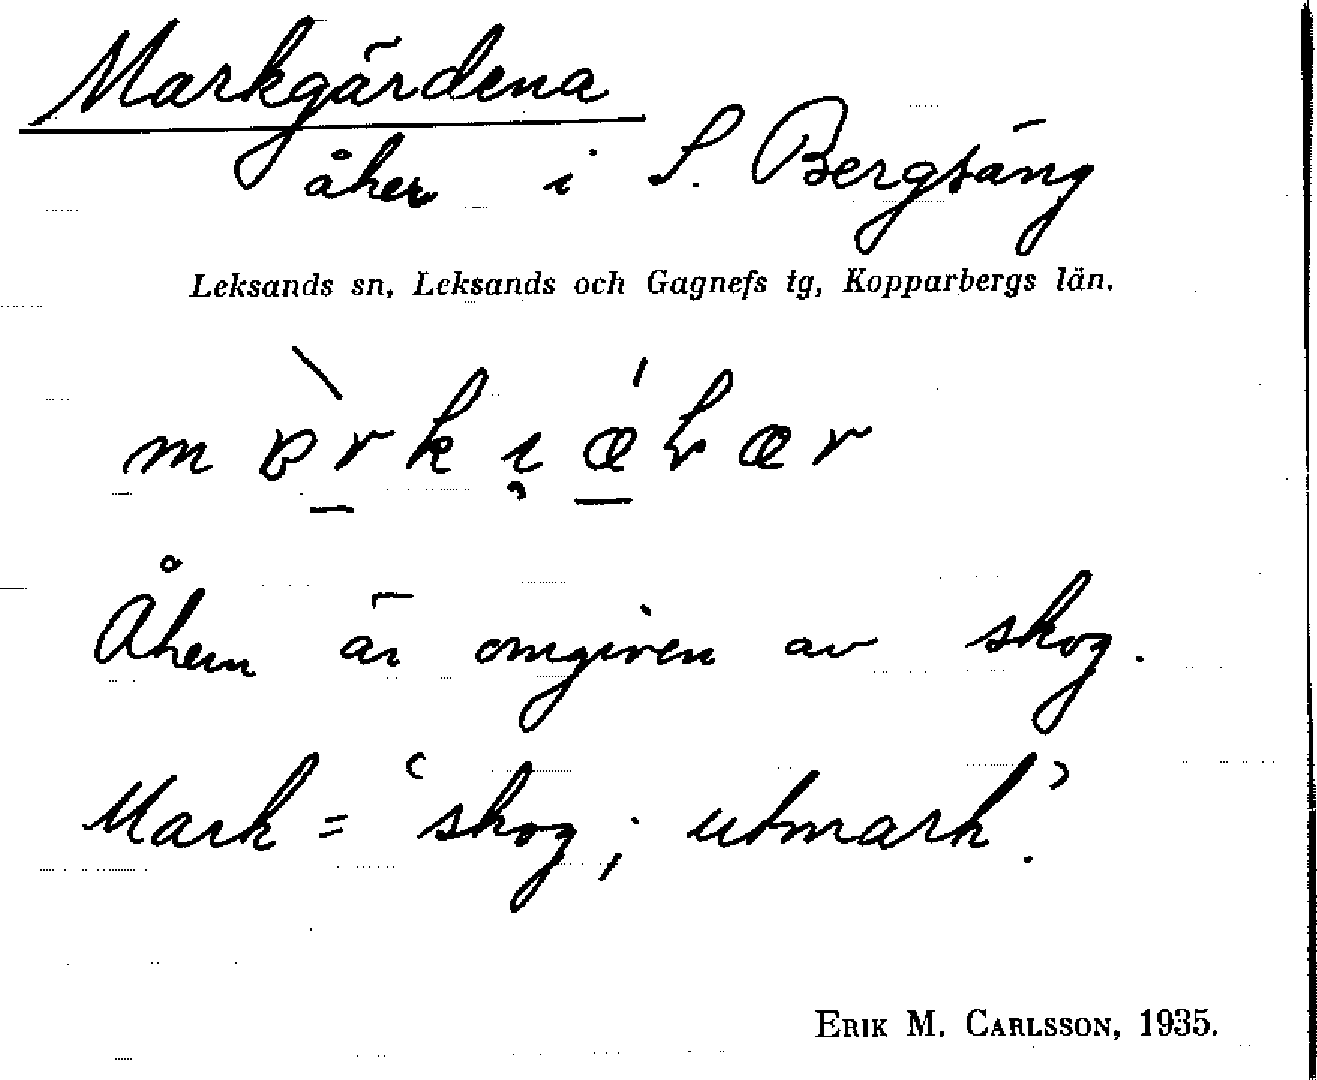 Markgärdena
åker i S. Bergsäng
Leksands sn, Leksands och Gagnefs tg, Kopparbergs län.
Åkern är omgiven av skog.
Mark = ‘skog; utmark’.
ERIK M. CARLSSON, 1935.